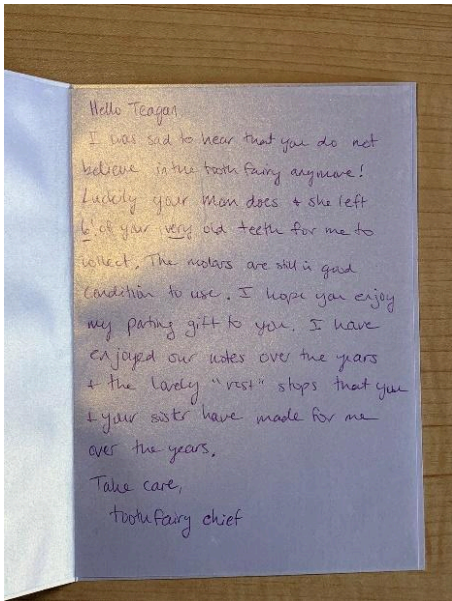 Hello Teagan
I was sad to hear that you do not
believe in the tooth fairy anymore!
Luckily your mom does & she left
6 of your very old teeth for me to
collect. The molars are still in good
condition to use. I hope you enjoy
my parting gift to you. I have
enjoyed our notes over the years
& the lovely "rest" stops that you
& your sister have made for me
over the years.
Take care,
tooth fairy chief